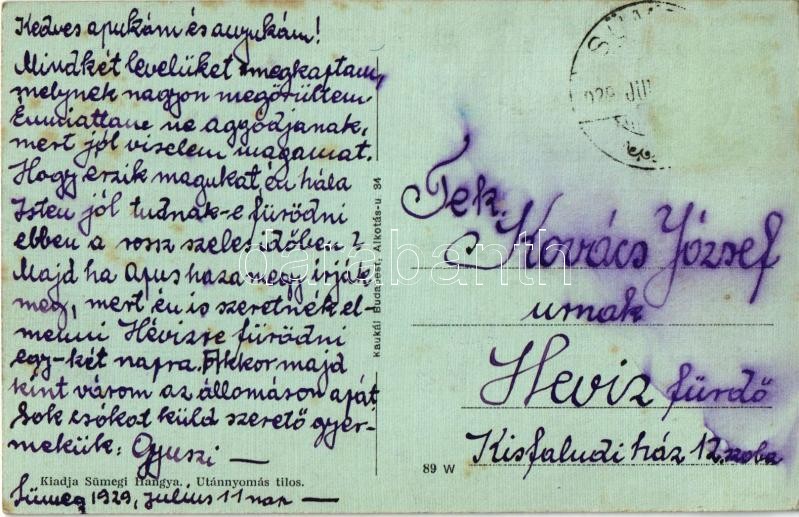 Kedves apukám és anyukám!
Mindkét levelüket megkaptam,
melynek nagyon megörültem.
Émmiattam ne aggódjanak,
mert jól viselem magamat.
Hogy érzik magukat én hála
Isten jól tudnak-e fürödni
ebben a rossz szeles időben?
Majd ha apus haza megy írják
meg, mert én is szeretnék el-
menni Hévizre fürödni
egy-két napra. Akkor majd
kint várom az állomáson apát.
Sok csókot küld szerető gyer-
mekük: Gyuszi —
Kiadja Sümegi Hangya. Utánnyomás tilos.
Sümeg 1929, julius 11 nap —
Kaukál Budapest, Alkotás-u. 34
89 W
929 JUL
Tek.
Kovács József
urnak
Heviz fürdő
Kisfaludi ház 12. szoba
darabanth